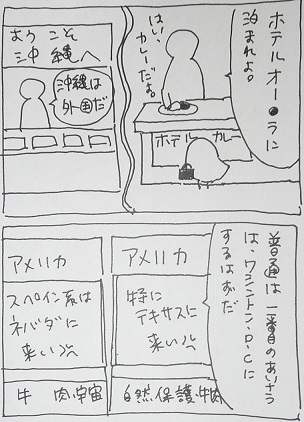 ホテルオー●ラに
泊まれよ。
はい、
カレーだよ。
ホテル カレー
ようこそ
沖縄へ
沖縄は
外国だ
普通は一番目のあいさつ
は、ワシントン・D・Cに
するはずだ
アメリカ
特に
テキサスに
来い!
自然保護・牛肉
アメリカ
スペイン系は
ネバダに
来い!
牛肉・宇宙